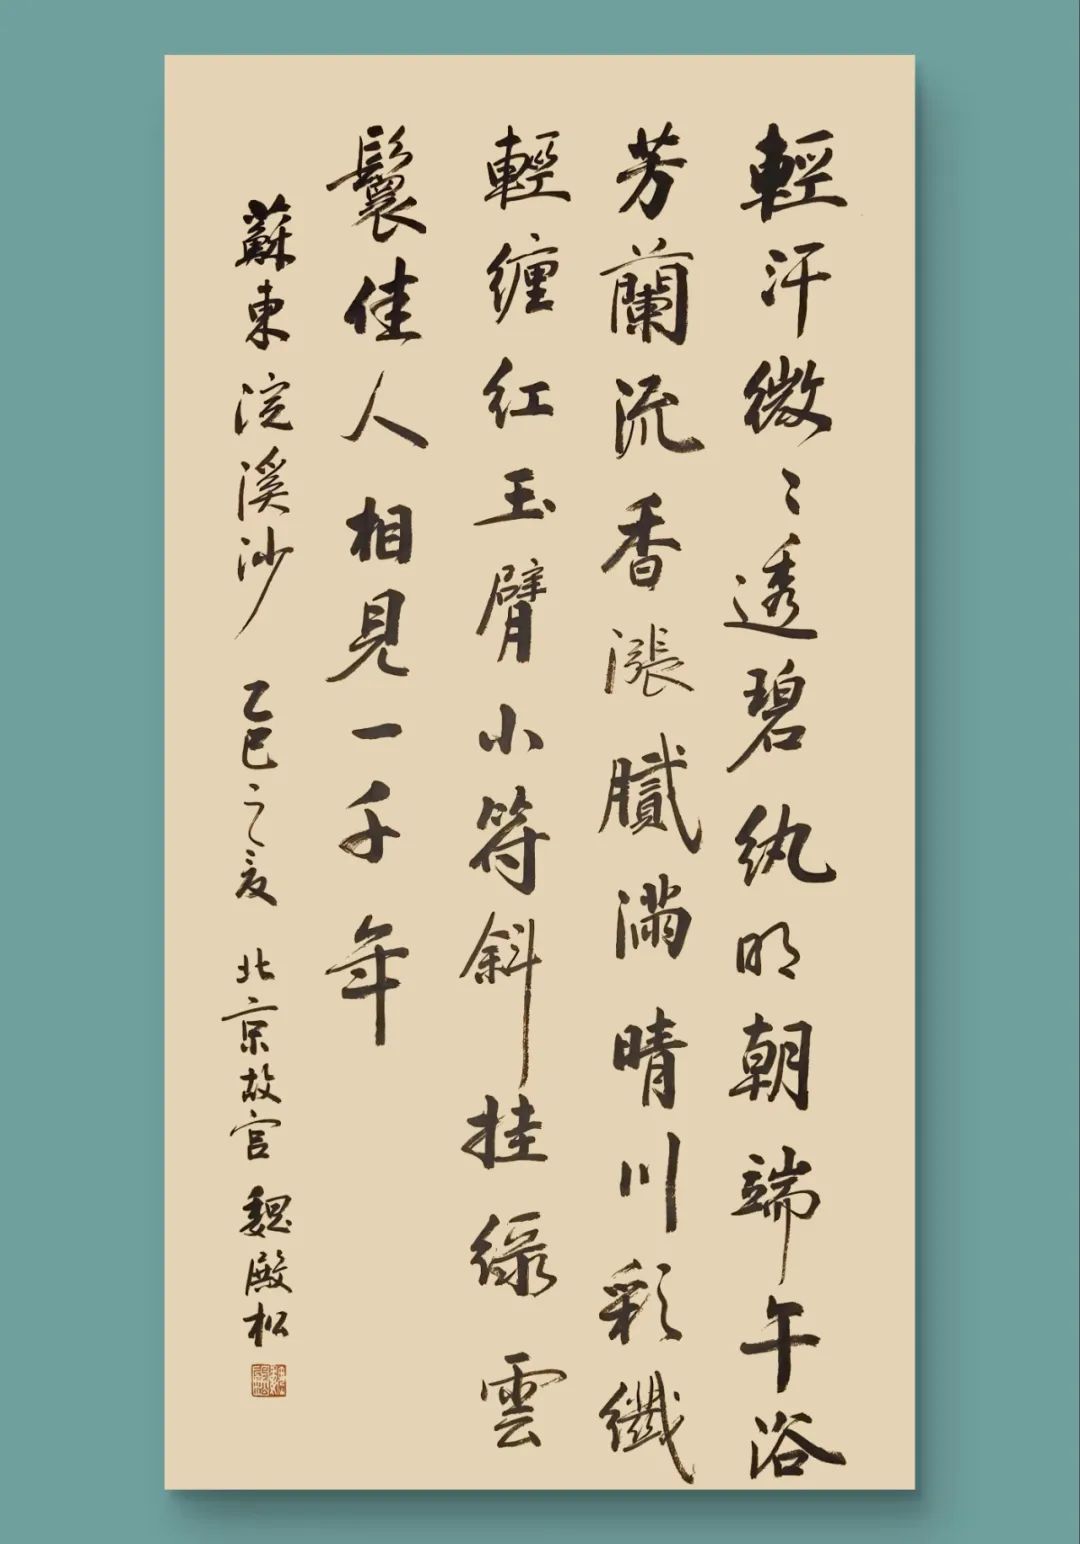 輕汗微〻透碧纨明朝端午浴
芳蘭流香漲膩满晴川彩纖
輕缠红玉臂小符斜挂绿雲
鬟佳人相見一千年
蘇東浣溪沙 乙巳之夏 北京故宫 魏殿松